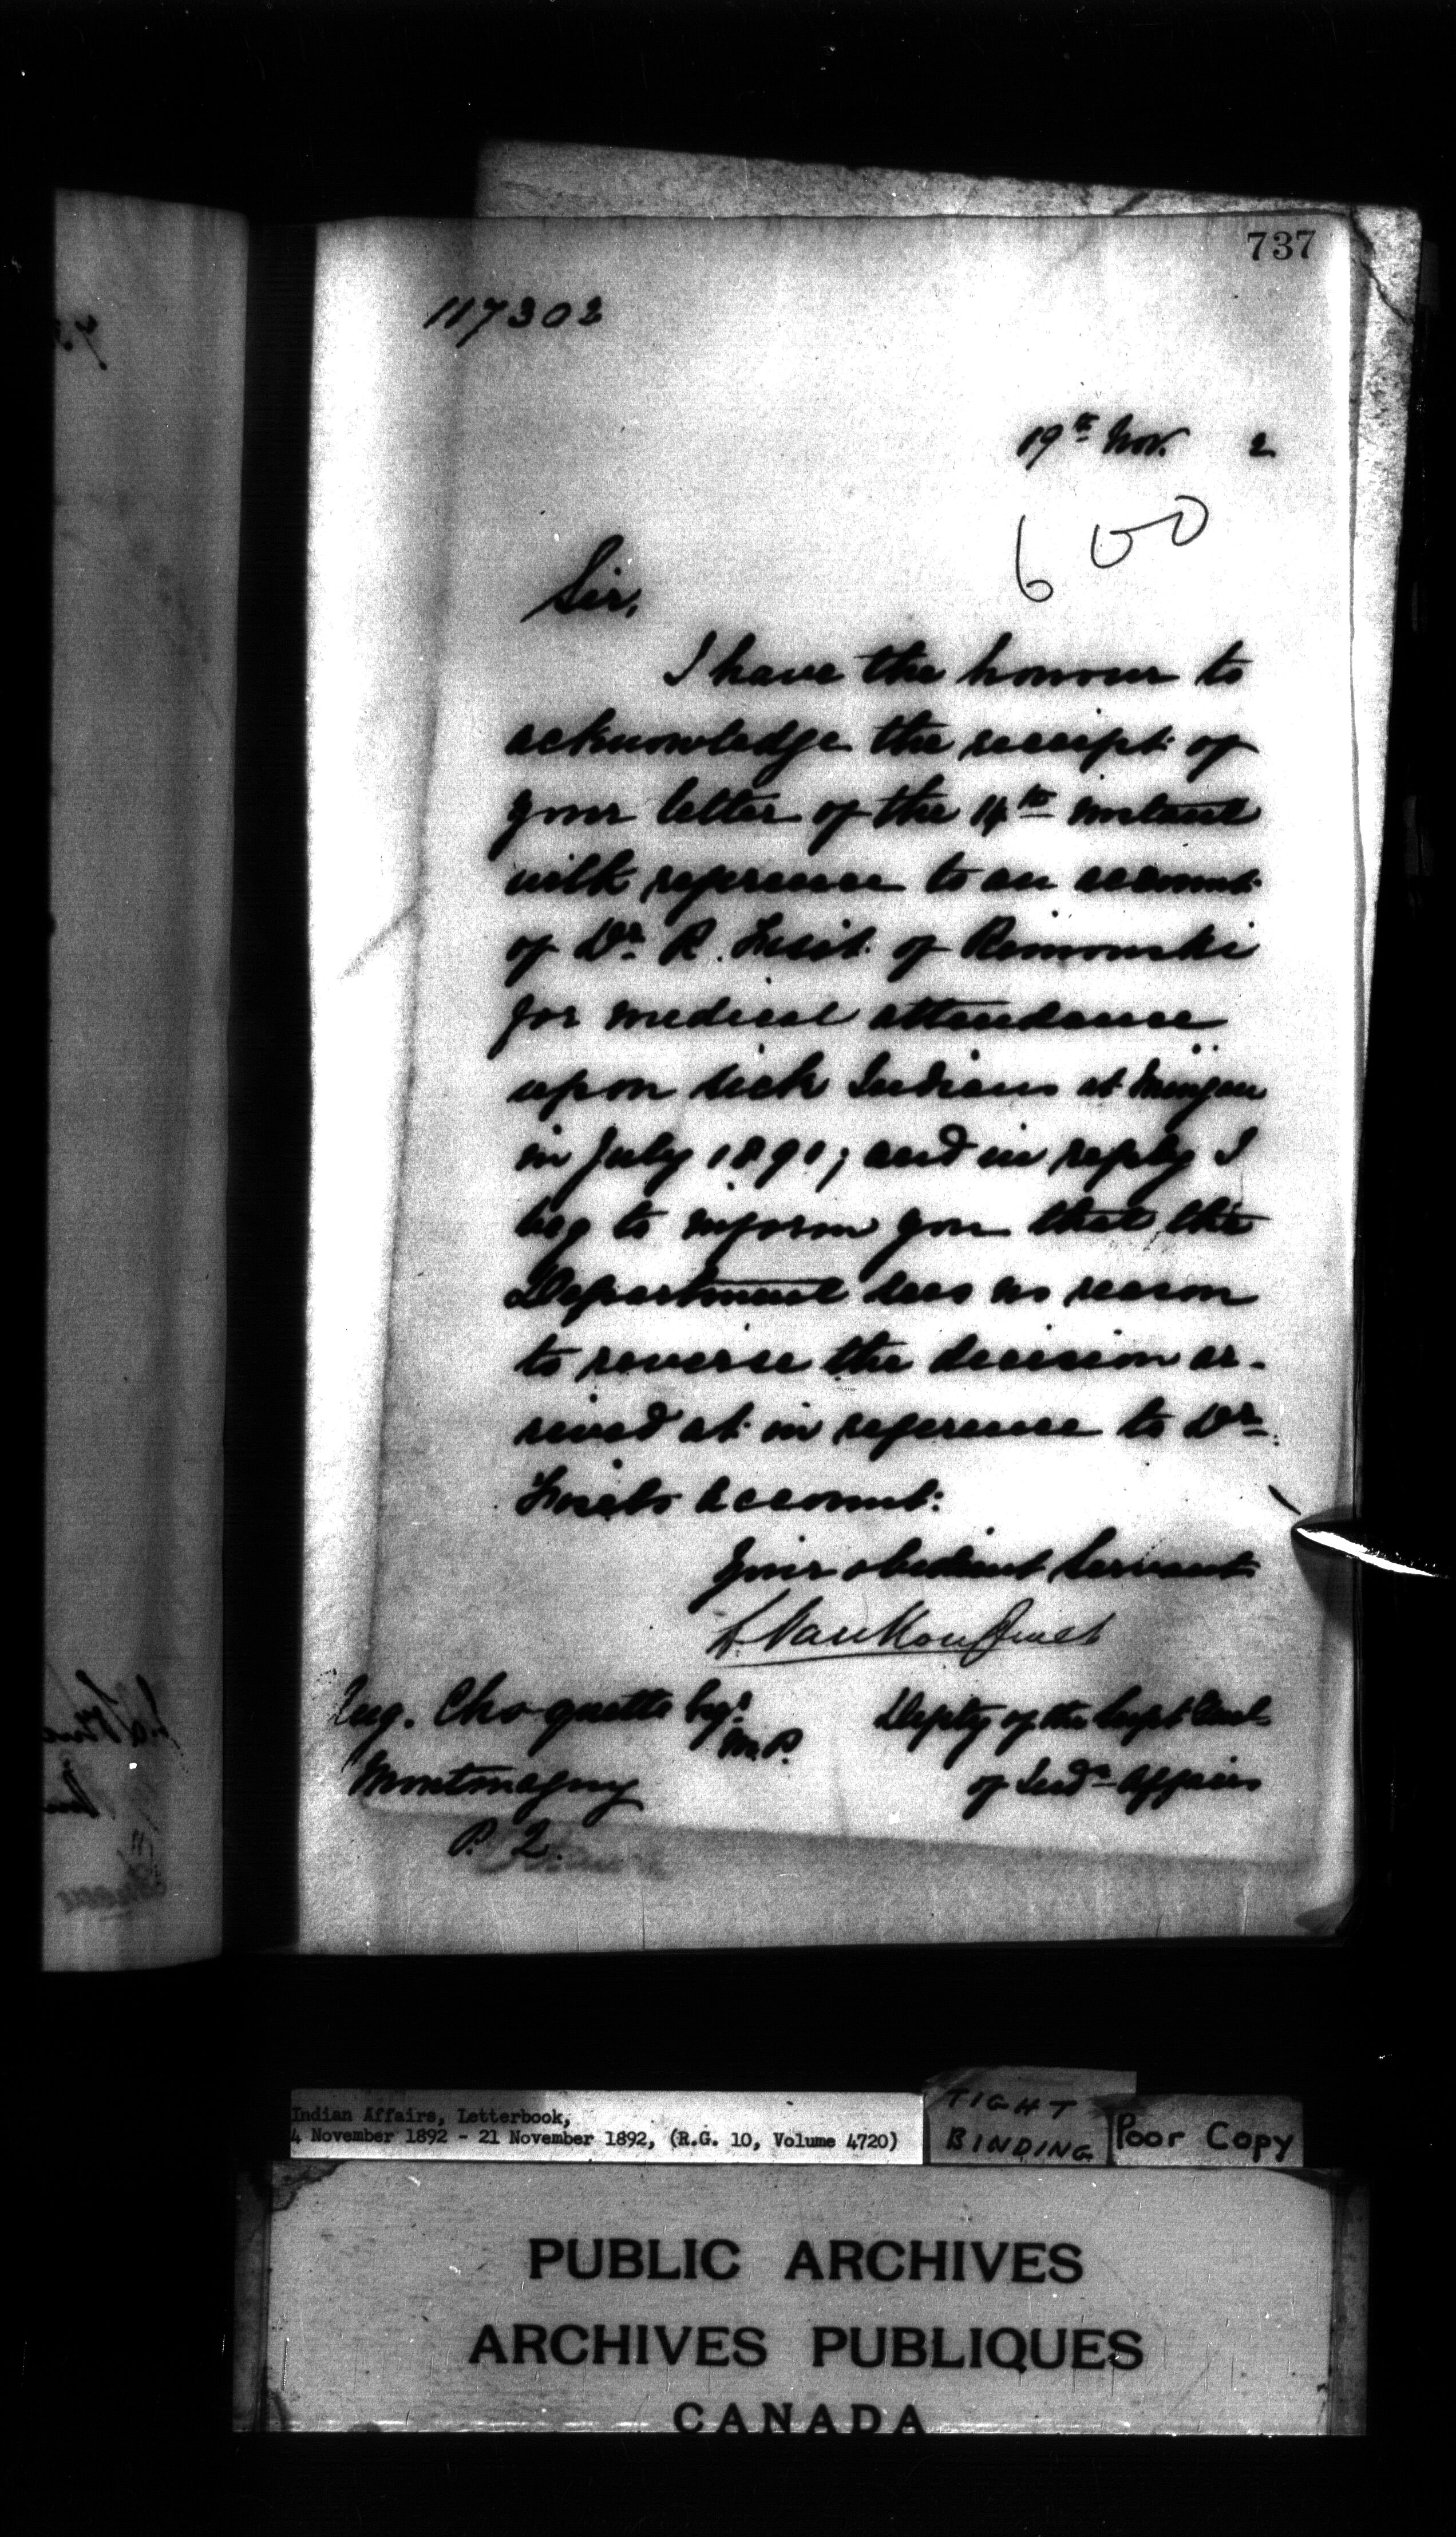 737
117302
19th Nov. 2
600
Sir,
I have the honour to
acknowledge the receipt of
your letter of the 14th instant
with reference to an account
of Dr. R. Fiset of Rimouski
for medical attendance
upon sick Indians at Mingan
in July 1891; and in reply I
beg to inform you that the
Department sees no reason
to reverse the decision ar-
rived at in reference to Dr.
Fiset's account.
Your obedient Servant
L. VanKoughnet
Deputy of the Supt Genl
of Indn Affairs
Aug. Choquette Esqr.
M.P.
Montmagny
P. Q.
Indian Affairs, Letterbook,
4 November 1892 - 21 November 1892, (R.G. 10, Volume 4720)
TIGHT
BINDING
Poor Copy
PUBLIC ARCHIVES
ARCHIVES PUBLIQUES
CANADA